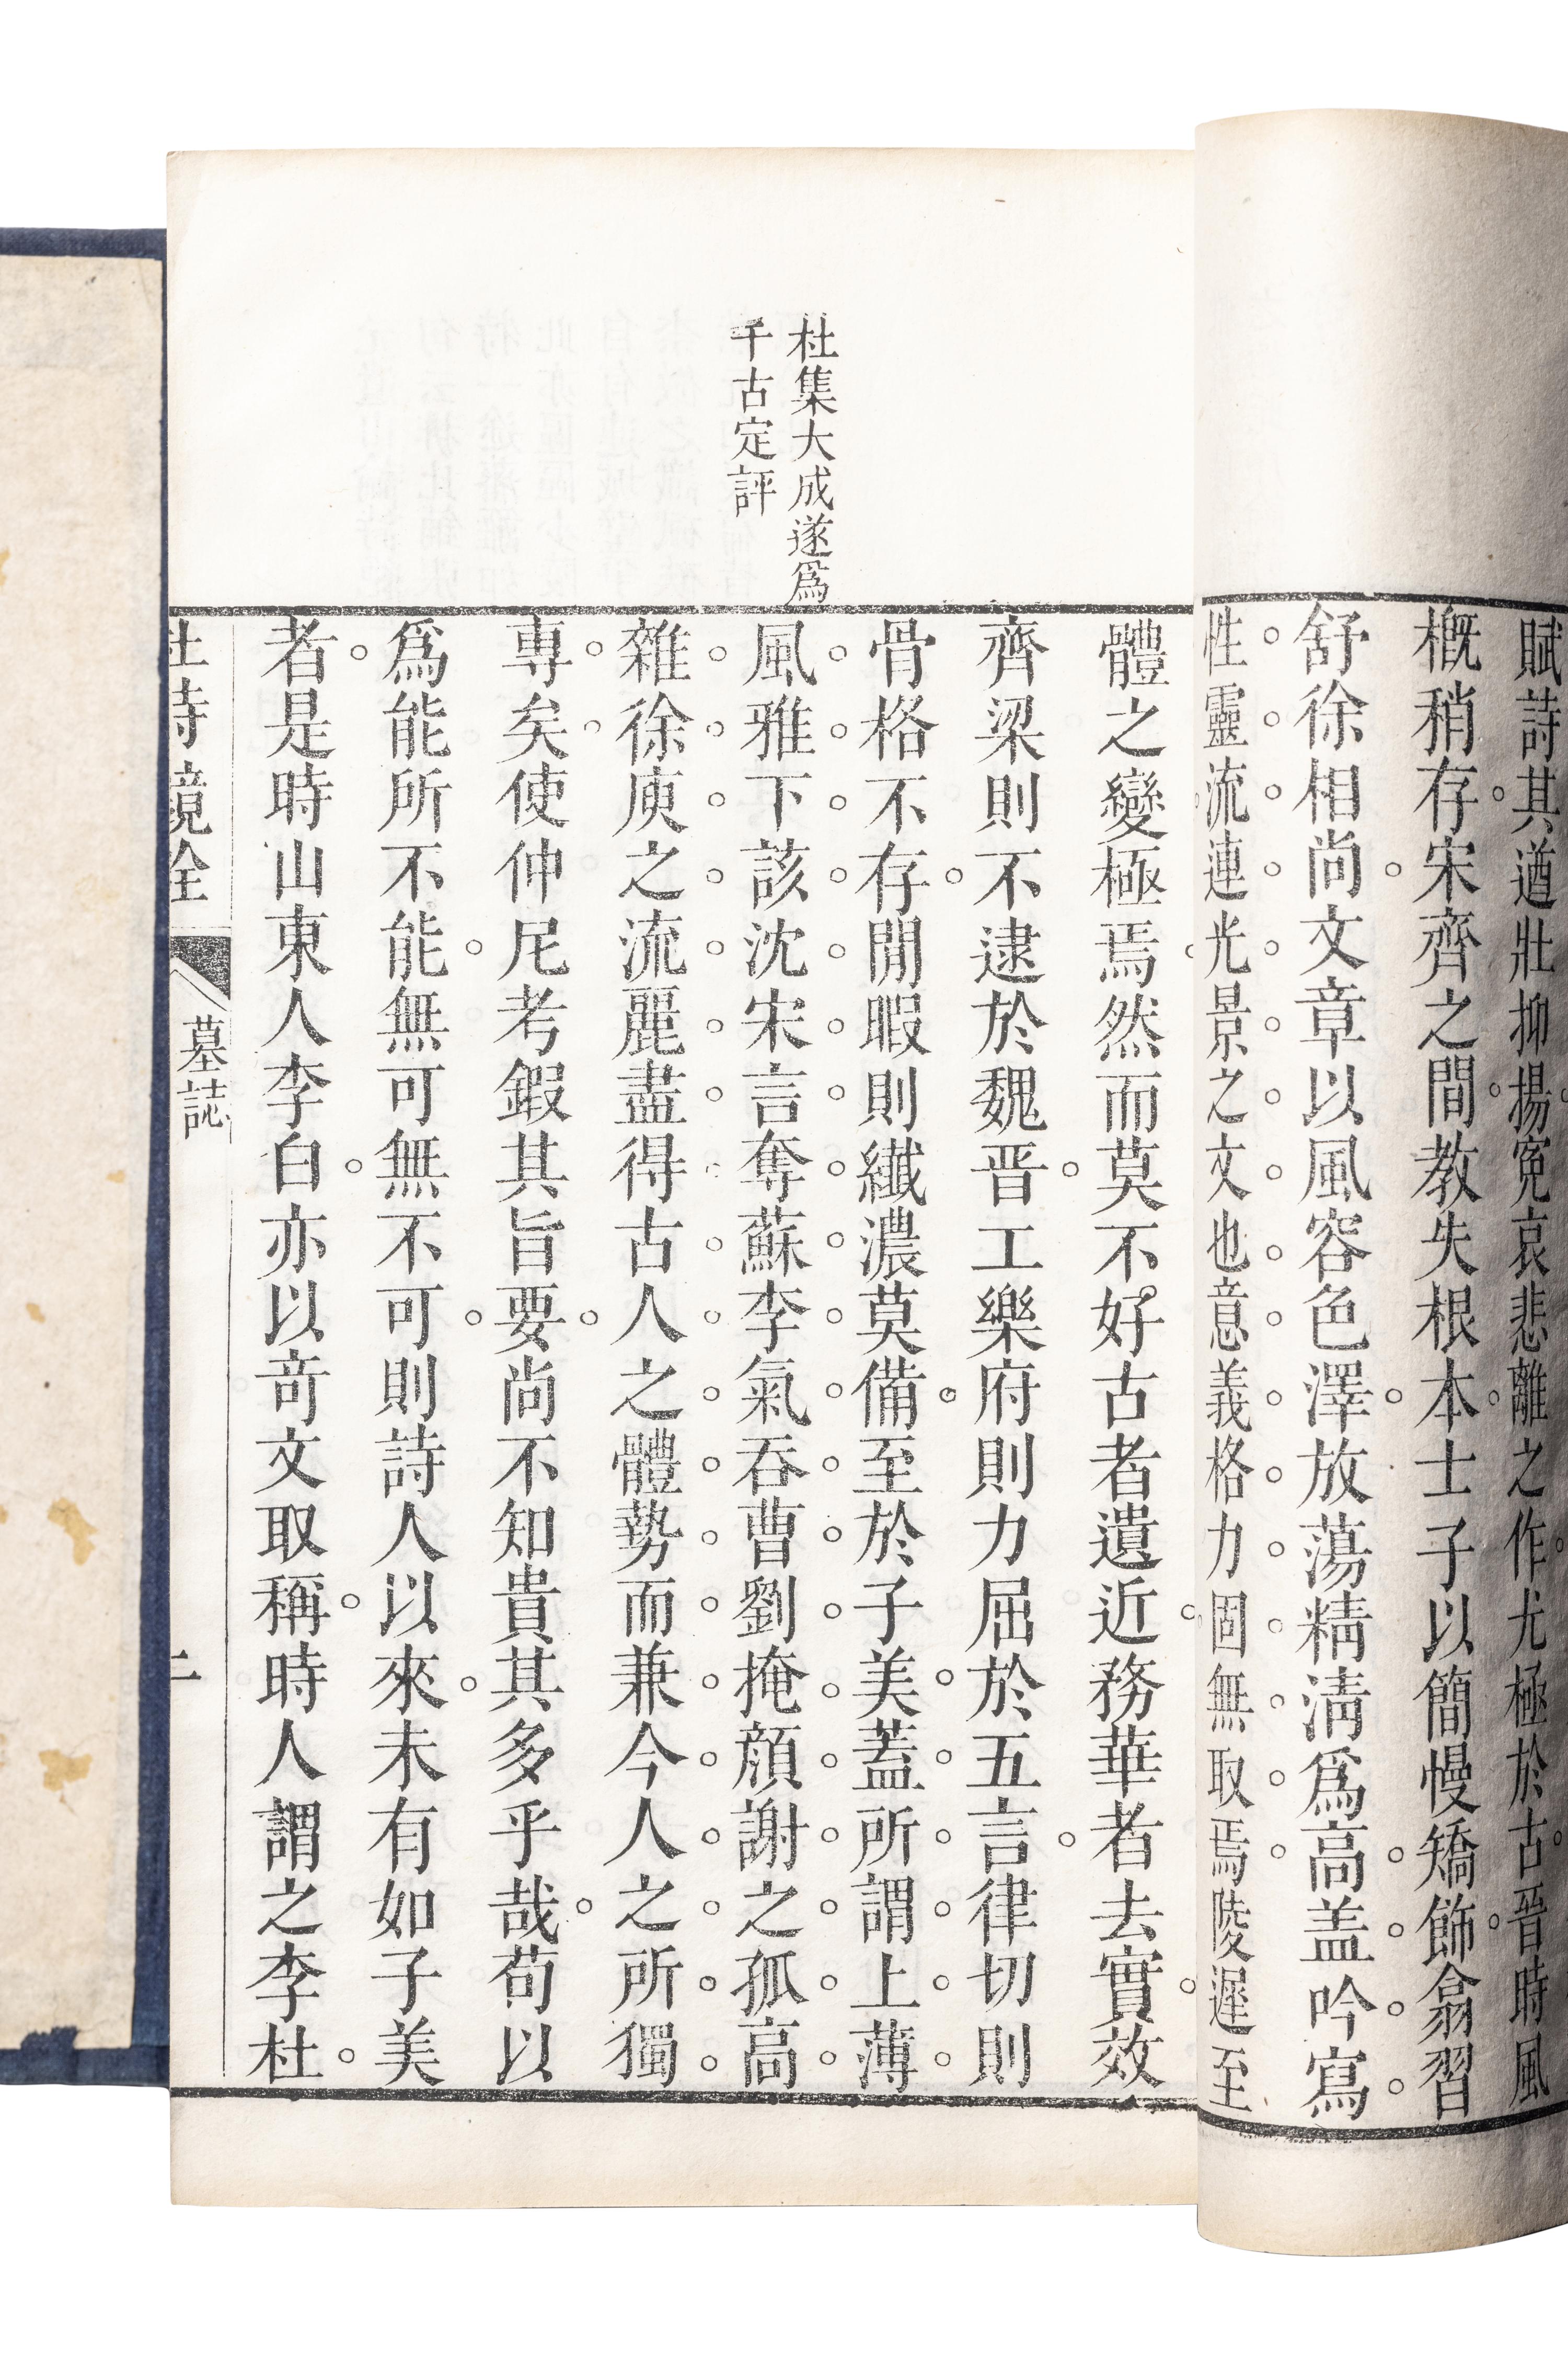 賦詩其遒壯抑揚冤哀悲離之作尤極於古晉時風
概稍存宋齊之間教失根本士子以簡慢矯飾翕習
舒徐相尚文章以風容色澤放蕩精淸爲高盖吟寫
性靈流連光景之文也意義格力固無取焉陵遲至
杜集大成遂爲
千古定評
體之變極焉然而莫不好古者遺近務華者去實效
齊梁則不逮於魏晋工樂府則力屈於五言律切則
骨格不存閒暇則纖濃莫備至於子美蓋所謂上薄
風雅下該沈宋言奪蘇李氣吞曹劉掩顏謝之孤高
雜徐庾之流麗盡得古人之體勢而兼今人之所獨
專矣使仲尼考鍜其旨要尚不知貴其多乎哉苟以
爲能所不能無可無不可則詩人以來未有如子美
者是時山東人李白亦以竒文取稱時人謂之李杜
杜詩鏡銓
墓誌
二